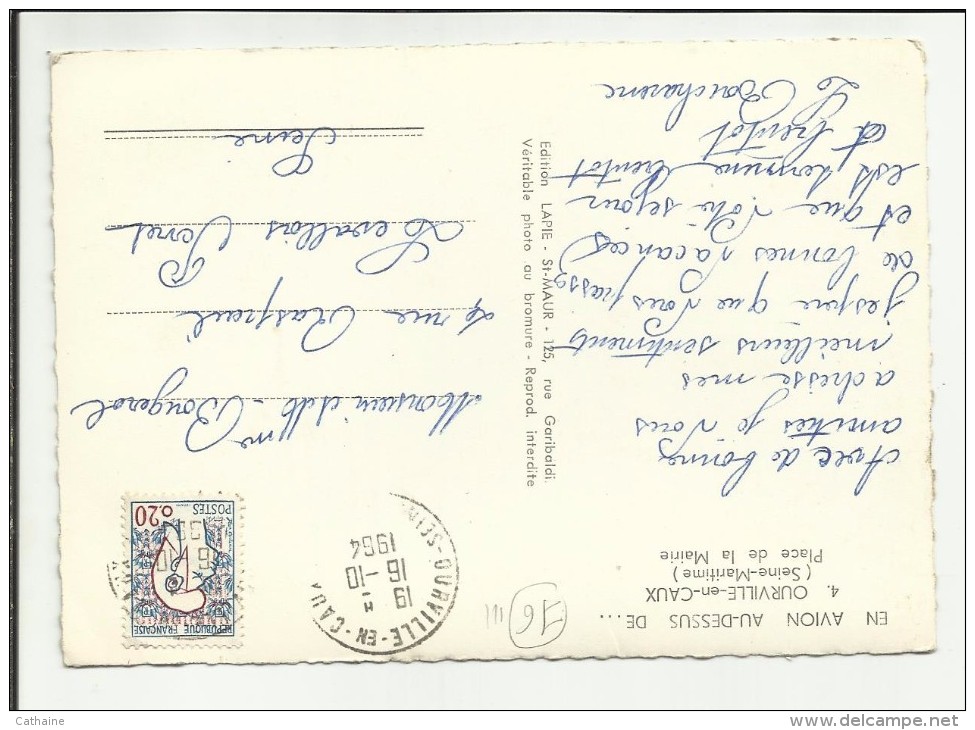 EN AVION AU-DESSUS DE...
4. OURVILLE-en-CAUX
(Seine-Maritime)
Place de la Mairie
Avec de bonnes
amitiés je vous
adresse mes
meilleurs sentiments
j'espère que vous passez
de bonnes vacances
et que votre séjour
est
bientôt
et bientôt
Edition LAPIE - St-MAUR - 125, rue Garibaldi.
Véritable photo au bromure - Reprod. interdite
76
OURVILLE-EN-CAUX
19 H
16-10
1964
REPUBLIQUE FRANÇAISE
0,20
POSTES
Monsieur et Mme Bougerol
rue Raspail
Levallois Perret
Seine
Cathaine
www.delcampe.net